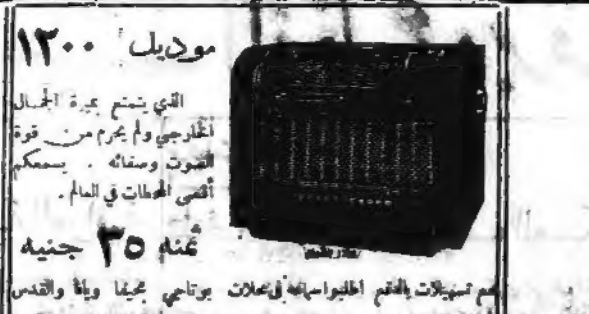 موديل ١٣٠٠
الذي يتمتع بميزة الجمال
الخارجي ولم يحرم من قوة
الصوت وصفائه . يسمعكم
أقصى المحطات في العالم .
ثمنه ٣٥ جنيه
تسهيلات بالدفع اطلبوا محلات بوتاجي بحيفا ويافا والقدس